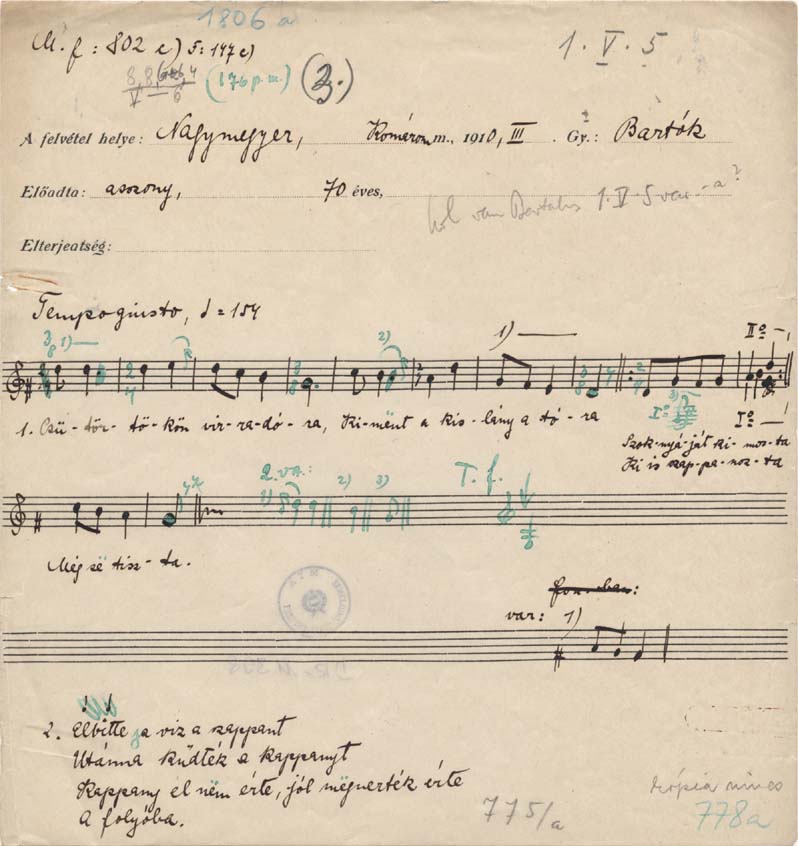 1806 a
M. f: 802 c) 5: 147 c)
1. V. 5
(176 p.m.) (2.)
A felvétel helye: Nagymegyer, Komárom m., 1910, III. Gy.: Bartók
Előadta: asszony, 70 éves,
hol van Bartalus 1. V. 5 var.-a?
Elterjedtség:
Tempo giusto, = 154
3/8 1) 2) 1) IIº
1. Csü-tör-tö-kön vir-ra-dó-ra, Ki-mënt a kis-lány a tó-ra
Iº 3) Iº
Szok-nyá-ját ki-mos-ta
Ki is szap-pa-noz-ta
2. va.: 1) 2) 3) T. f.
Még së tisz-ta.
var: 1)
2. Elvitte ja viz a szappant
Utánna küdték a kappanyt
Kappany el nëm érte, jól mëgverték érte
A folyóba.
775/a
kópia nincs
778a